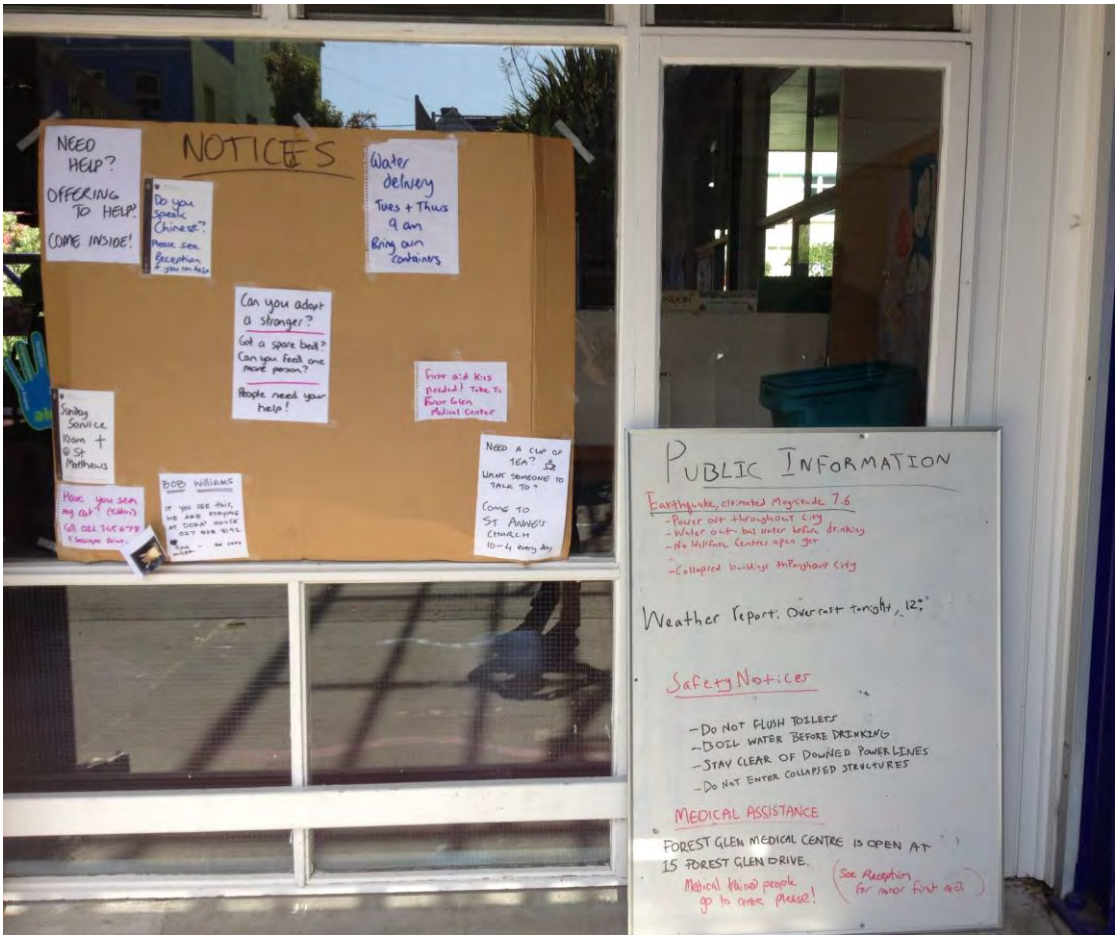 NOTICES
NEED
HELP?
OFFERING
TO HELP?
COME INSIDE!
Do you
speak
Chinese?
Please see
Reception
+ you can help
Water
delivery
Tues + Thurs
9 am
Bring own
containers
Can you adopt
a stranger?
Got a spare bed?
Can you feed one
more person?
People need your
help!
First aid kits
needed! Take To
Forest Glen
Medical Center
Sunday
Service
10am +
@ St
Matthews
Have you seen
my cat?
Call 021 345 678
BOB Williams
IF YOU SEE THIS,
WE ARE STAYING
AT DORA'S HOUSE
027
NEED A CUP OF
TEA?
WANT SOMEONE TO
TALK TO?
COME TO
ST ANNE'S
CHURCH
10-4 every day
PUBLIC INFORMATION
Earthquake, estimated Magnitude 7.6
- Power out throughout city
- Water out - boil water before drinking
- No Welfare Centres open yet
- Collapsed buildings throughout city
Weather report: Overcast tonight, 12°
Safety Notices
- DO NOT FLUSH TOILETS
- BOIL WATER BEFORE DRINKING
- STAY CLEAR OF DOWNED POWERLINES
- DO NOT ENTER COLLAPSED STRUCTURES
MEDICAL ASSISTANCE
FOREST GLEN MEDICAL CENTRE IS OPEN AT
15 FOREST GLEN DRIVE.
Medical trained people
go to centre please!
(See Reception
for minor first aid.)